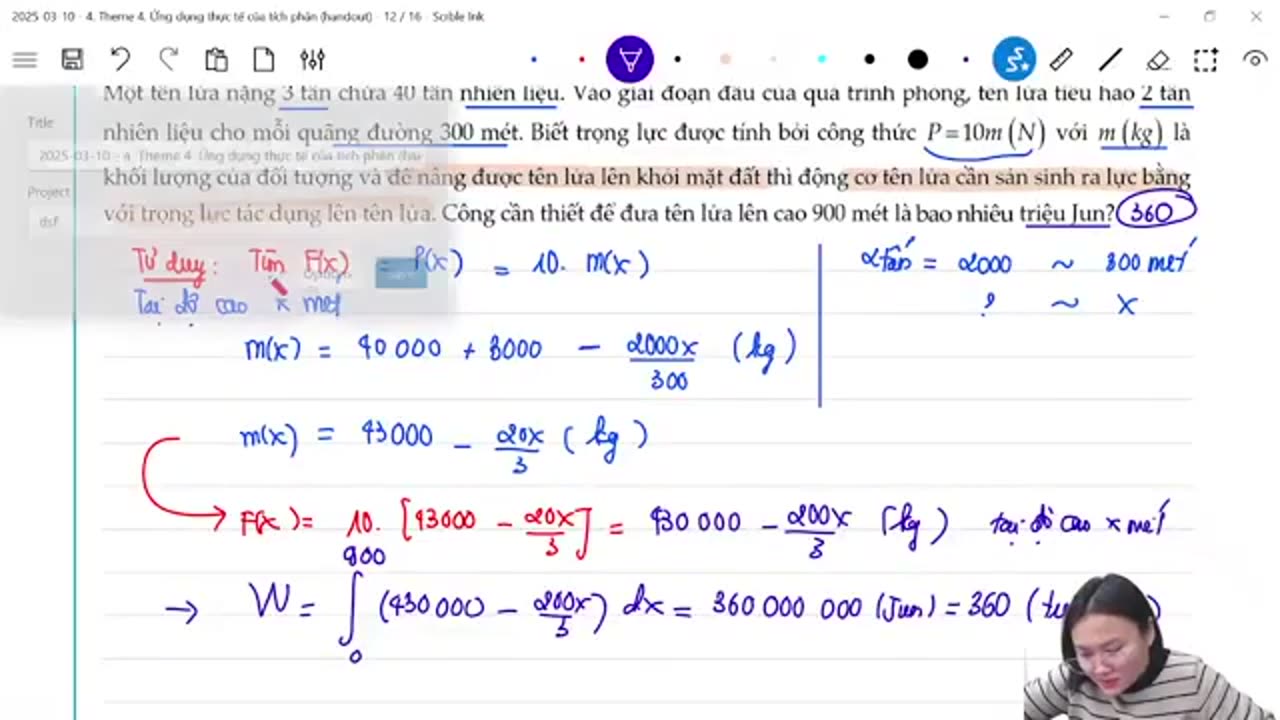 2025-03-10 - 4. Theme 4. Ứng dụng thực tế của tích phân (handout) - 12 / 16 - Scrible Ink
Một tên lửa nặng 3 tấn chứa 40 tấn nhiên liệu. Vào giai đoạn đầu của quá trình phóng, tên lửa tiêu hao 2 tấn
Title
nhiên liệu cho mỗi quãng đường 300 mét. Biết trọng lực được tính bởi công thức P = 10m (N) với m (kg) là
2025-03-10 - 4. Theme 4. Ứng dụng thực tế của tích phân (han
khối lượng của đối tượng và để nâng được tên lửa lên khỏi mặt đất thì động cơ tên lửa cần sản sinh ra lực bằng
Project
với trọng lực tác dụng lên tên lửa. Công cần thiết để đưa tên lửa lên cao 900 mét là bao nhiêu triệu Jun? 360
dsf
Tư duy: Tìm F(x) = P(x) = 10. m(x)
Tại độ cao x mét
2 tấn = 2000 ~ 300 mét
? ~ x
m(x) = 40 000 + 3000 - 2000x/300 (kg)
m(x) = 43000 - 20x/3 (kg)
F(x) = 10. [43000 - 20x/3] = 430 000 - 200x/3 (kg) tại độ cao x mét
→ W = ∫₀⁹⁰⁰ (430 000 - 200x/3) dx = 360 000 000 (Jun) = 360